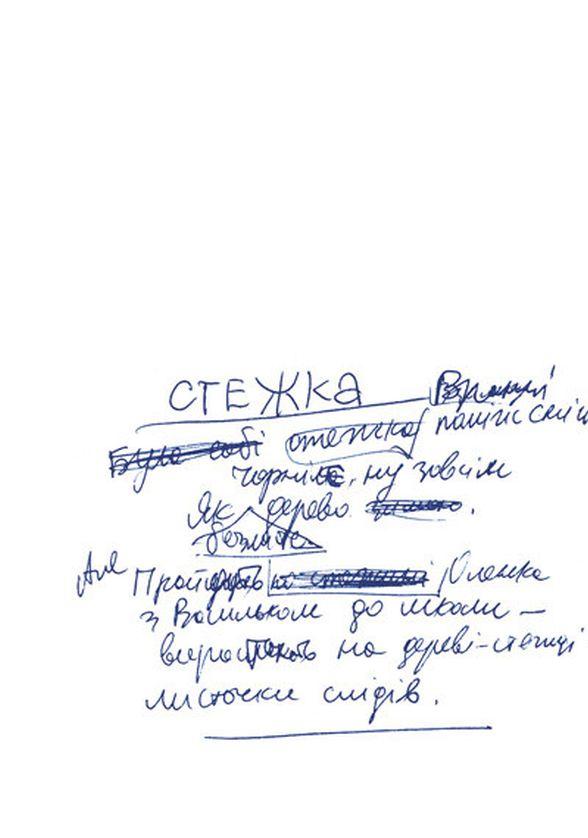 СТЕЖКА
Була собі стежка
чорніє, ну зовсім
Як дерево
безлисте
Але Пройдуть Оленка
з Васильком до школи –
виростають на дереві-стежці
листочки слідів.